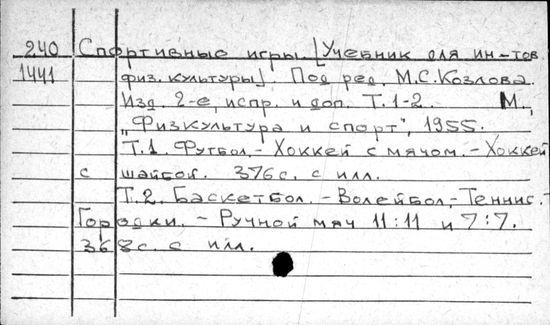 240 Спортивные игры. [Учебник для ин-тов
1441 физ. культуры]. Под ред. М.С. Козлова.
Изд. 2-е, испр. и доп. Т.1-2. М.,
"Физкультура и спорт", 1955.
Т.1. Футбол.- Хоккей с мячом.- Хоккей
с шайбой. 376 с. с илл.
Т.2. Баскетбол.- Волейбол.- Теннис.-
Городки. - Ручной мяч 11:11 и 7:7.
368 с. с илл.